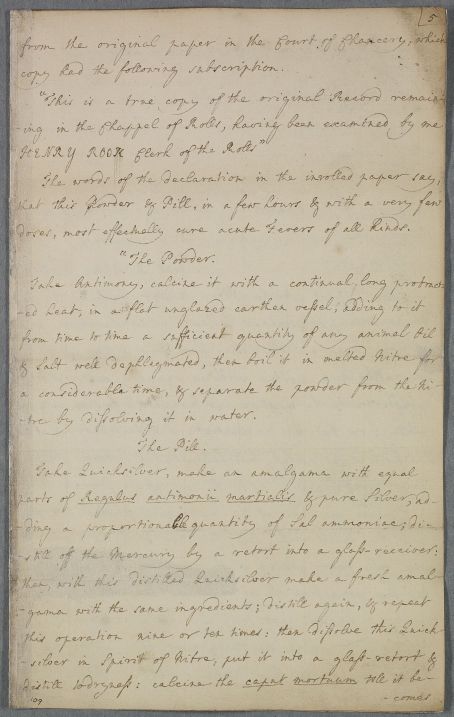 5
from the original paper in the Court of Chancery, which
copy had the following subscription.
"This is a true copy of the original Record remain-
ing in the Chappel of Rolls, having been examined by me
HENRY ROOK Clerk of the Rolls"
The words of the declaration in the inrolled paper say,
that this Powder & Pill, in a few hours & with a very few
doses, most effectually cure acute Fevers of all kinds.
"The Powder.
Take Antimony, calcine it with a continual, long protract-
-ed heat, in a flat unglazed earthen vessel; adding to it
from time to time a sufficient quantity of any animal Oil
& Salt well dephlegmated, then boil it in melted Nitre for
a considerable time, & separate the powder from the Ni-
-tre by dissolving it in water.
The Pill.
Take Quicksilver, make an amalgama with equal
parts of Regulus antimonii martialis, & pure Silver, ad-
ding a proportionable quantity of Sal ammoniac; di-
-still off the Mercury by a retort into a glass-receiver:
then, with this distilled Quicksilver make a fresh amal-
-gama with the same ingredients; distill again, & repeat
this operation nine or ten times: then dissolve this Quick
-silver in Spirit of Nitre, put it into a glass-retort &
distill to dryness: calcine the caput mortuum till it be-
-comes